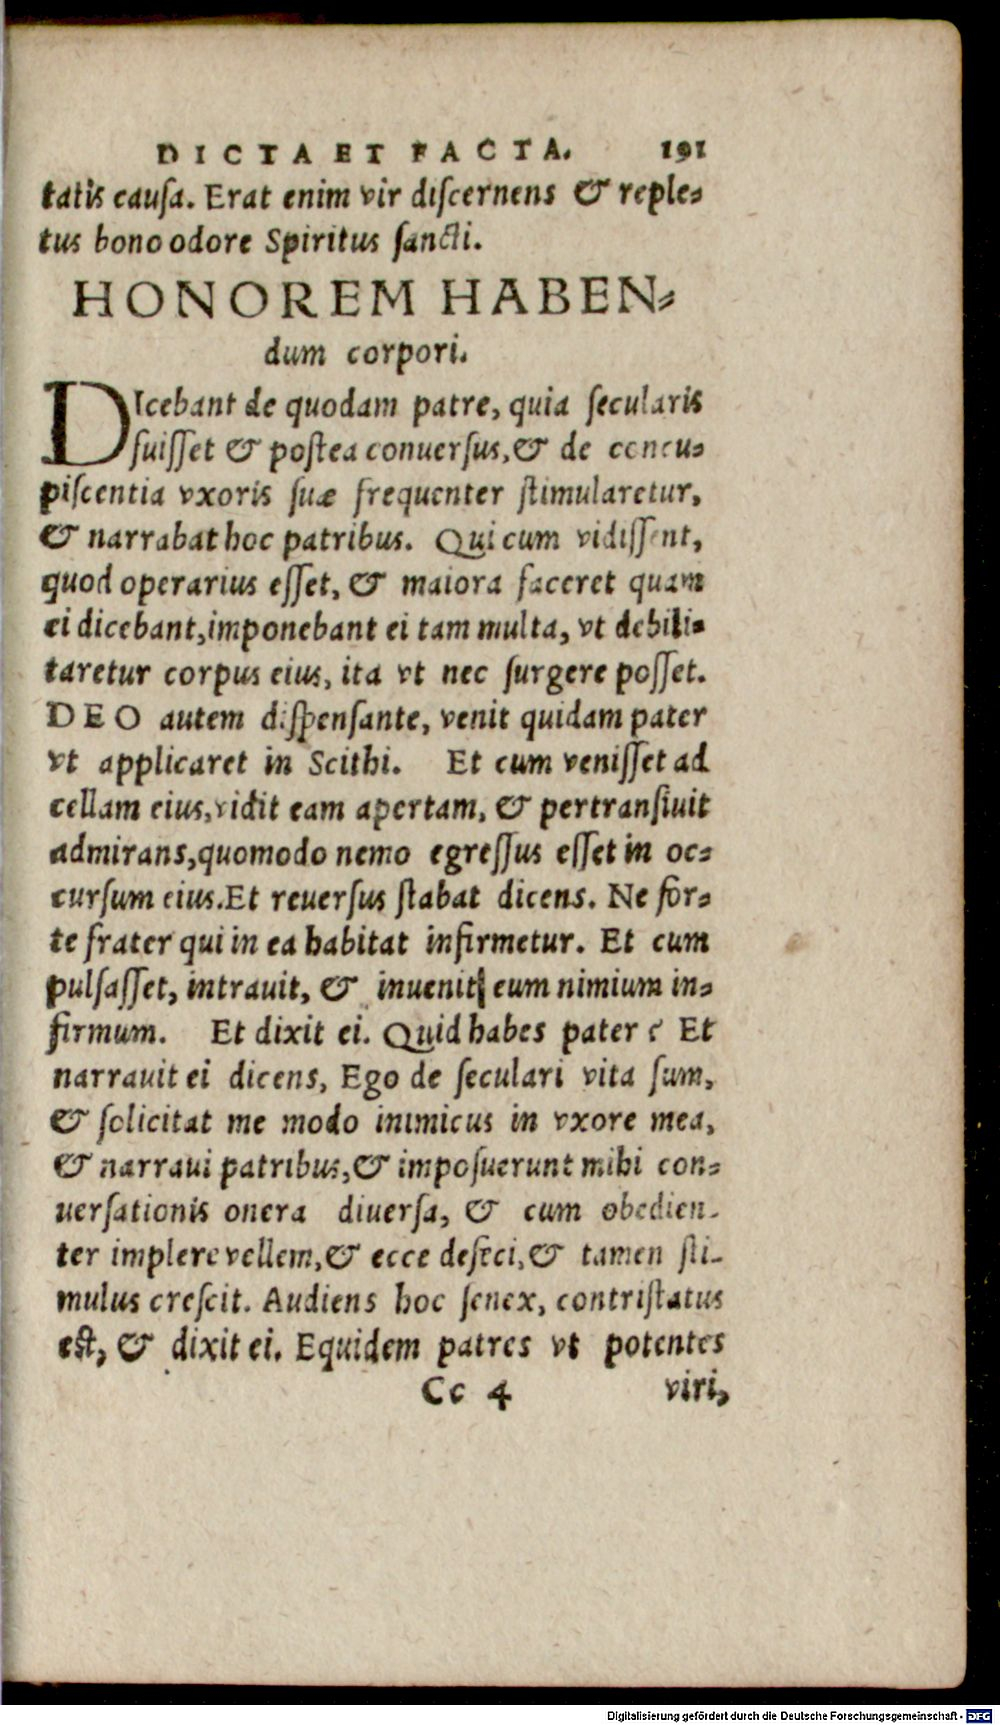 DICTA ET FACTA. 191
tatis cauſa. Erat enim vir diſcernens & reple⸗
tus bono odore Spiritus ſancti.
HONOREM HABEN⸗
dum corpori.
DIcebant de quodam patre, quia ſecularis
fuiſſet & poſtea conuerſus, & de concu⸗
piſcentia vxoris ſuæ frequenter ſtimularetur,
& narrabat hoc patribus. Qui cum vidiſſent,
quod operarius eſſet, & maiora faceret quam
ei dicebant, imponebant ei tam multa, vt debili⸗
taretur corpus eius, ita vt nec ſurgere poſſet.
DEO autem diſpenſante, venit quidam pater
vt applicaret in Scithi. Et cum veniſſet ad
cellam eius, vidit eam apertam, & pertranſiuit
admirans, quomodo nemo egreſſus eſſet in oc⸗
curſum eius. Et reuerſus ſtabat dicens. Ne for⸗
te frater qui in ea habitat infirmetur. Et cum
pulſaſſet, intrauit, & inuenit eum nimium in⸗
firmum. Et dixit ei. Quid habes pater? Et
narrauit ei dicens, Ego de ſeculari vita ſum,
& ſolicitat me modo inimicus in vxore mea,
& narraui patribus, & impoſuerunt mihi con⸗
uerſationis onera diuerſa, & cum obedien-
ter implere vellem, & ecce defeci, & tamen ſti-
mulus creſcit. Audiens hoc ſenex, contriſtatus
eſt, & dixit ei. Equidem patres vt potentes
Cc 4 viri,
Digitalisierung gefördert durch die Deutsche Forschungsgemeinschaft - DFG